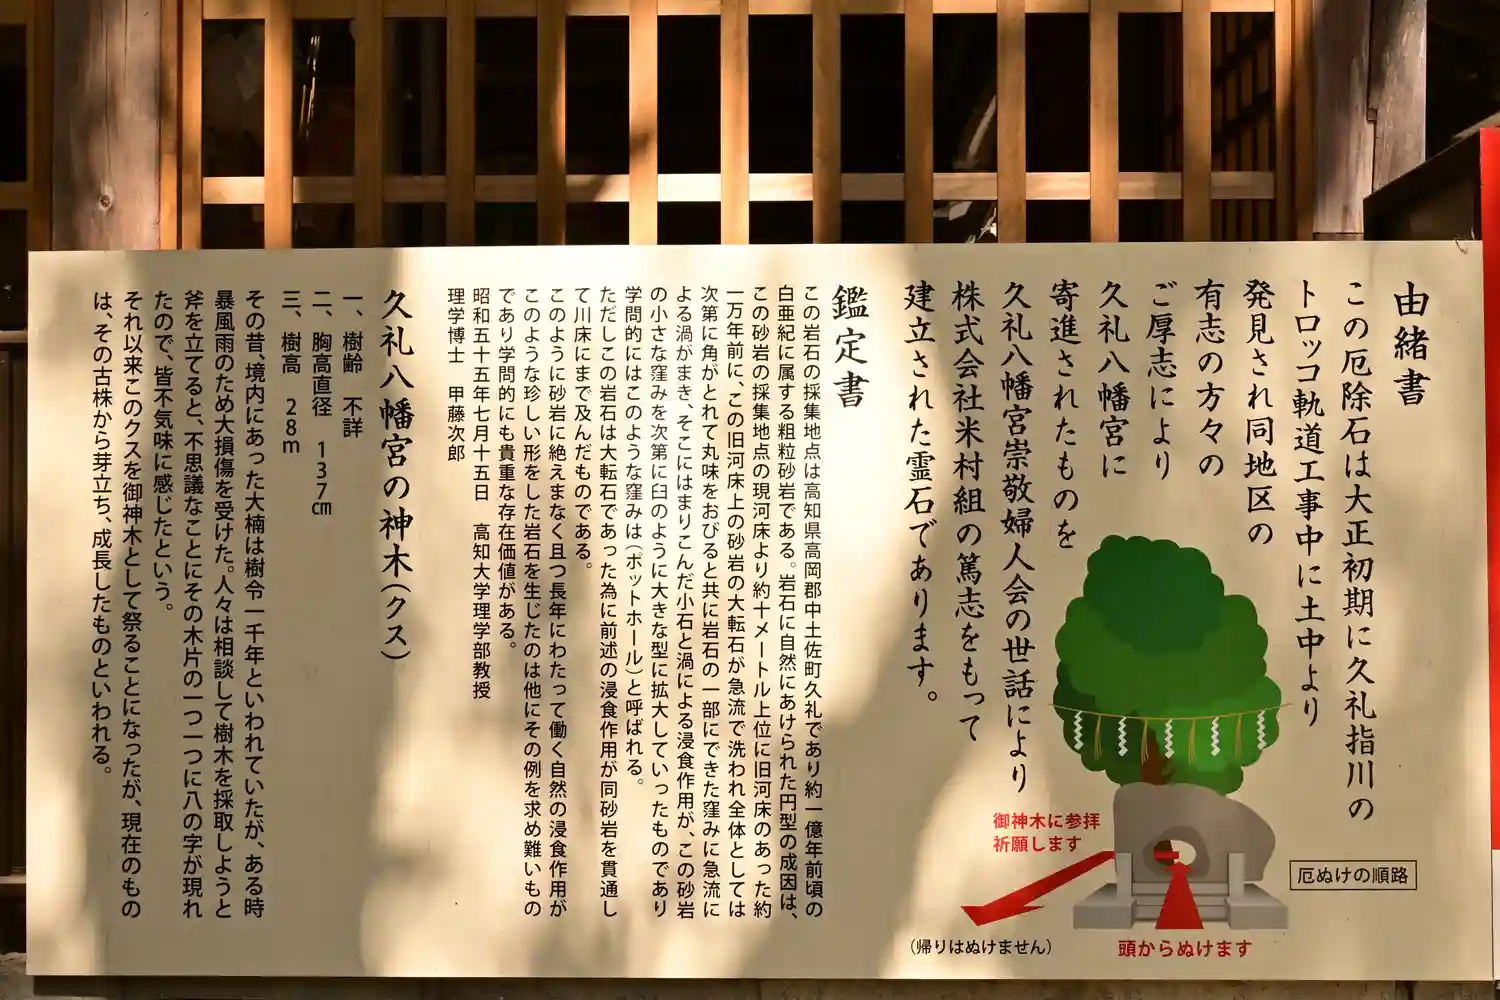 由緒書
この厄除石は大正初期に久礼指川の
トロッコ軌道工事中に土中より
発見され同地区の
有志の方々の
ご厚志により
久礼八幡宮に
寄進されたものを
久礼八幡宮崇敬婦人会の世話により
株式会社米村組の篤志をもって
建立された霊石であります。
鑑定書
この岩石の採集地点は高知県高岡郡中土佐町久礼であり約一億年前頃の
白亜紀に属する粗粒砂岩である。岩石に自然にあけられた円型の成因は、
この砂岩の採集地点の現河床より約十メートル上位に旧河床のあった約
一万年前に、この旧河床上の砂岩の大転石が急流で洗われ全体としては
次第に角がとれて丸味をおびると共に岩石の一部にできた窪みに急流に
よる渦がまき、そこにはまりこんだ小石と渦による浸食作用が、この砂岩
の小さな窪みを次第に臼のように大きな型に拡大していったものであり
学問的にはこのような窪みは(ポットホール)と呼ばれる。
ただしこの岩石は大転石であった為に前述の浸食作用が同砂岩を貫通し
て川床にまで及んだものである。
このように砂岩に絶えまなく且つ長年にわたって働く自然の浸食作用が
このような珍しい形をした岩石を生じたのは他にその例を求め難いもの
であり学問的にも貴重な存在価値がある。
昭和五十五年七月十五日 高知大学理学部教授
理学博士 甲藤次郎
久礼八幡宮の神木(クス)
一、樹齢 不詳
二、胸高直径 137㎝
三、樹高 28m
その昔、境内にあった大楠は樹令一千年といわれていたが、ある時
暴風雨のため大損傷を受けた。人々は相談して樹木を採取しようと
斧を立てると、不思議なことにその木片の一つ一つに八の字が現れ
たので、皆不気味に感じたという。
それ以来このクスを御神木として祭ることになったが、現在のもの
は、その古株から芽立ち、成長したものといわれる。
御神木に参拝
祈願します
厄ぬけの順路
(帰りはぬけません)
頭からぬけます